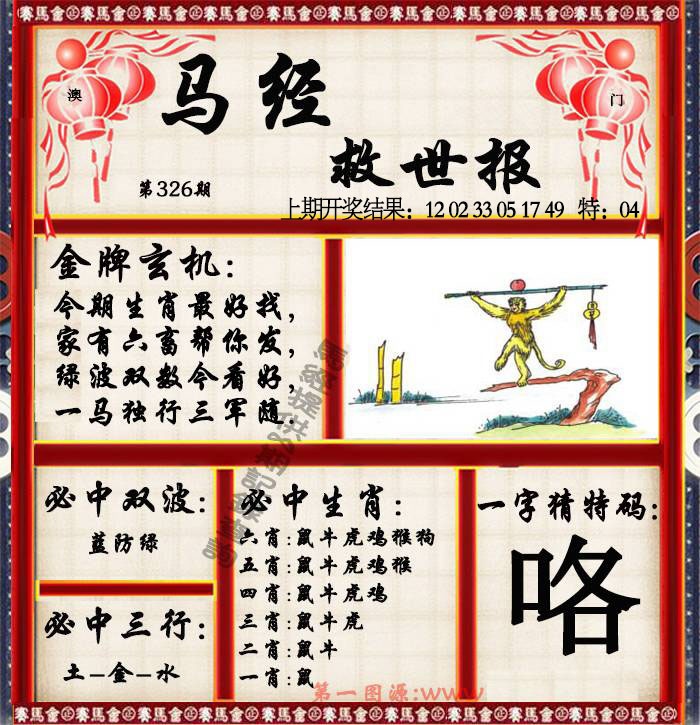 賽馬會金賽馬會金賽馬會金賽馬會金賽馬會金賽馬會金
澳
门
马经
救世报
第326期
上期开奖结果：12 02 33 05 17 49 特：04
金牌玄机：
今期生肖最好找，
家有六畜帮你发，
绿波双数今看好，
一马独行三军随.
必中双波：
蓝防绿
必中三行：
土-金-水
必中生肖：
六肖:鼠牛虎鸡猴狗
五肖:鼠牛虎鸡猴
四肖:鼠牛虎鸡
三肖:鼠牛虎
二肖:鼠牛
一肖:鼠
一字猜特码:
咯
第一图源:www